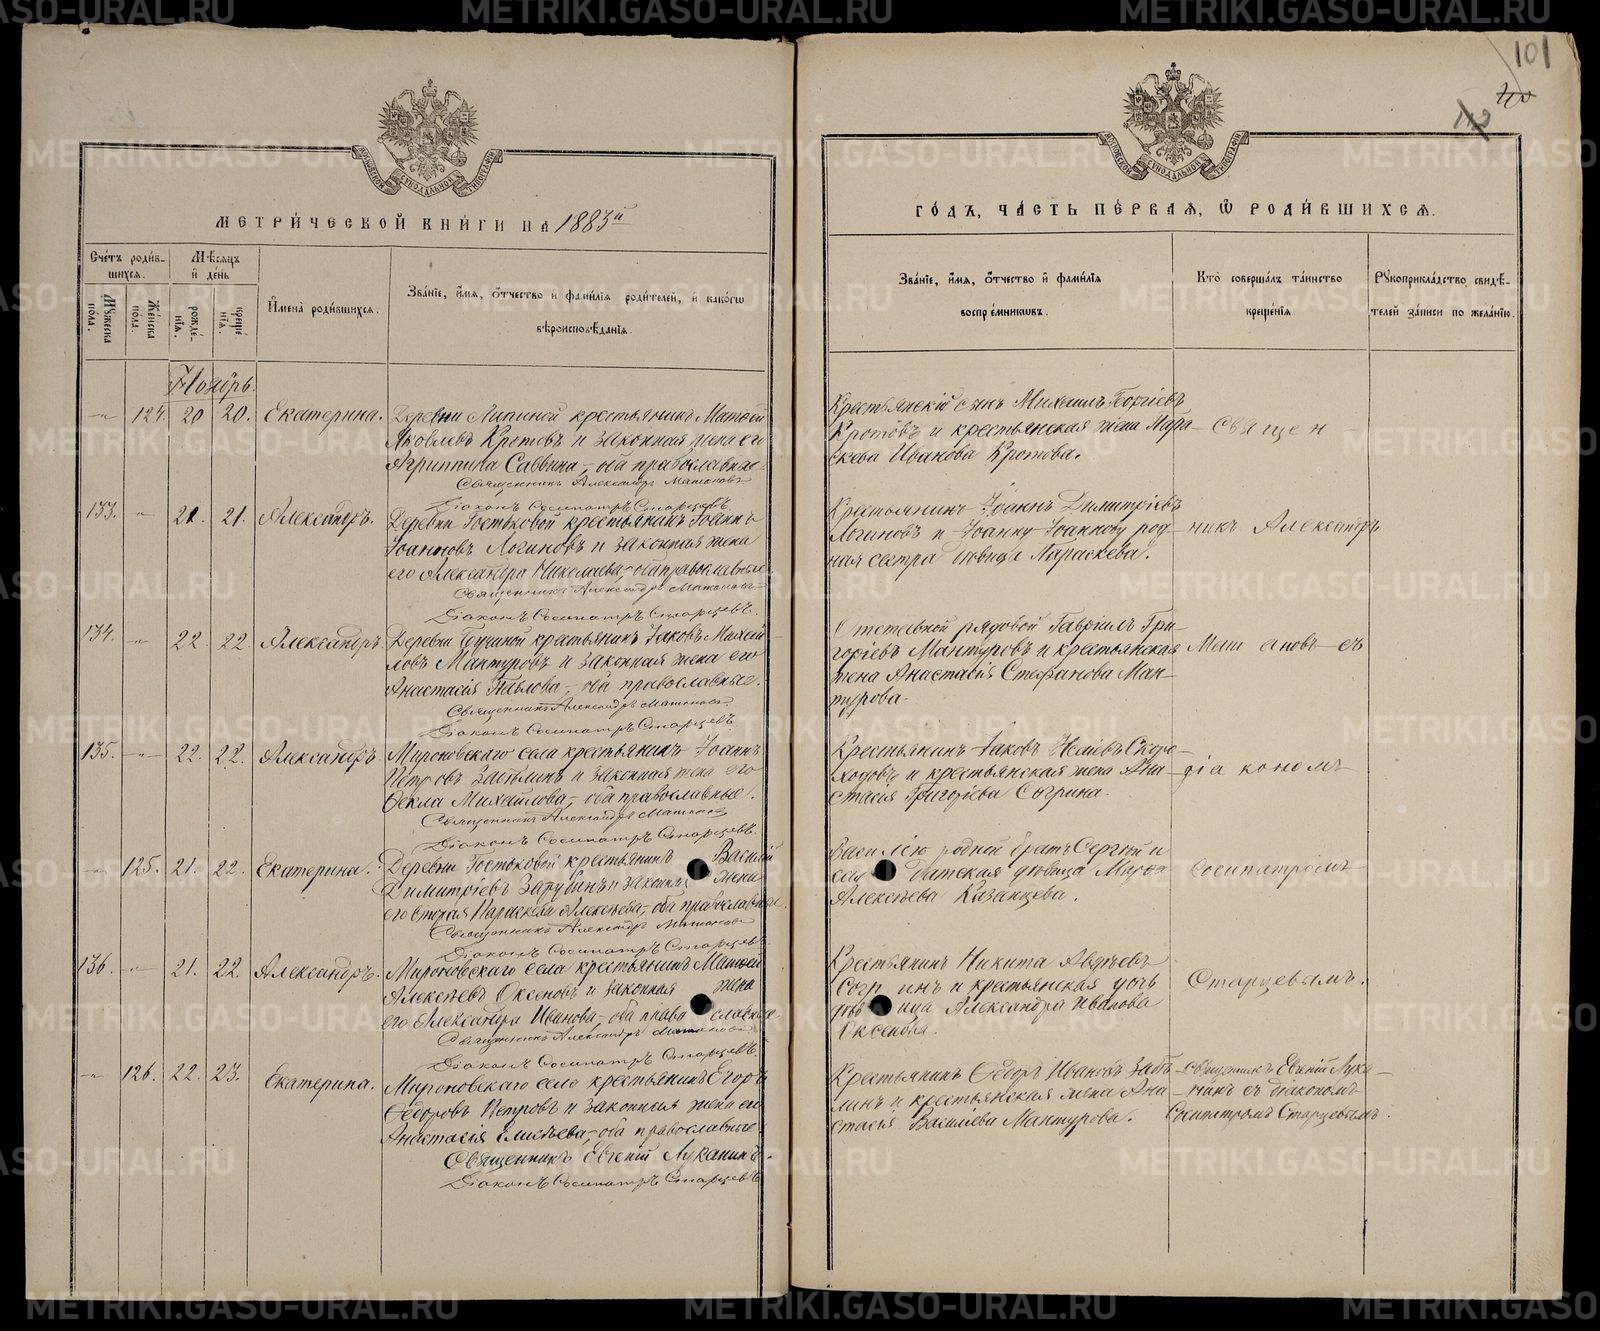 METRIKI.GASO-URAL.RU
101
МЕТРИ́ЧЕСКОЙ КНИ́ГИ НА 1883й
ГО́ДЪ, ЧА́СТЬ ПЕ́РВАЯ, Ѡ РОДИ́ВШИХСЯ.
Сче́тъ роди́в-
шихся.
Мѣ́сяцъ
и де́нь
Му́жеска
пола.
Же́нска
по́ла.
рожде́-
нїя.
креще́
нїя.
Имена̀ роди́вшихся.
Зва́нїе, и́мя, о́тчество и фами́лїя роди́телей, и како́гѡ
вѣроисповѣ́данїя.
Зва́нїе, и́мя, о́тчество и фами́лїя
воспрїе́мникѡвъ.
Кто̀ соверша́лъ та́инство
креще́нїя.
Рукоприкла́дство свидѣ́-
телей за́писи по жела́нїю.
Ноябрь.
124. 20 20. Екатерина.
Деревни Липиной крестьянинъ Матѳей
Яковлевъ Кротовъ и законная жена его
Агриппина Саввина, оба православные.
Священникъ Александръ
Діаконъ Сосипатръ Старцевъ.
Крестьянскій сынъ Михаилъ Георгіевъ
Кротовъ и крестьянская жена Пара-
скева Иванова Кротова.
Священ-
133. 21. 21. Александръ.
крестьянинъ Іоаннъ
Іоанновъ Логиновъ и законная жена
его Александра Николаева, оба православные
Священникъ Александръ
Діаконъ Сосипатръ Старцевъ.
Крестьянинъ Іоаннъ Димитріевъ
Логиновъ и Іоанну Іоаннову род-
ная сестра дѣвица Параскева.
никъ Александръ
134. 22. 22. Александръ.
крестьянинъ Іаковъ Михай
ловъ Мантуровъ и законная жена его
Анастасія Павлова, оба православные.
Священникъ Александръ
Діаконъ Сосипатръ Старцевъ.
Отставной рядовой Гавріилъ Гри-
горіевъ Мантуровъ и крестьянская
жена Анастасія Стефанова Ман-
турова.
съ
135. 22. 22. Александръ
Мироновскаго села крестьянинъ Іоаннъ
Петровъ и законная жена его
Ѳекла Михайлова, оба православные.
Священникъ Александръ
Діаконъ Сосипатръ Старцевъ.
Крестьянинъ Іаковъ Скоро-
ходовъ и крестьянская жена Ана-
стасія Григоріева Согрина.
діакономъ
125. 21. 22. Екатерина.
крестьянинъ Василій
Димитріевъ Зарубинъ и законная жена
его Параскева Алексѣева, оба православные
Священникъ Александръ
Діаконъ Сосипатръ Старцевъ.
Василію родной братъ Сергій и
дѣвица
Алексѣева Казанцева.
Сосипатромъ
136. 21. 22. Александръ.
Мироновскаго села крестьянинъ Матѳей
Алексѣевъ и законная жена
его Александра Иванова, оба православные
Священникъ Александръ
Діаконъ Сосипатръ Старцевъ.
Крестьянинъ Никита Авдѣевъ
и крестьянская дочь
дѣвица Александра Иванова
Старцевымъ.
126. 22. 23. Екатерина.
Мироновскаго село крестьянинъ Егоръ
Ѳедоровъ Петровъ и законная жена его
Анастасія Елисѣева, оба православные
Священникъ Евгеній Луканинъ.
Діаконъ Сосипатръ Старцевъ
Крестьянинъ Ѳедоръ Ивановъ
и крестьянская жена Ана-
стасія Василіева Мантурова.
священникъ Евгеній Лука-
нинъ съ діакономъ
Сосипатромъ Старцевымъ.